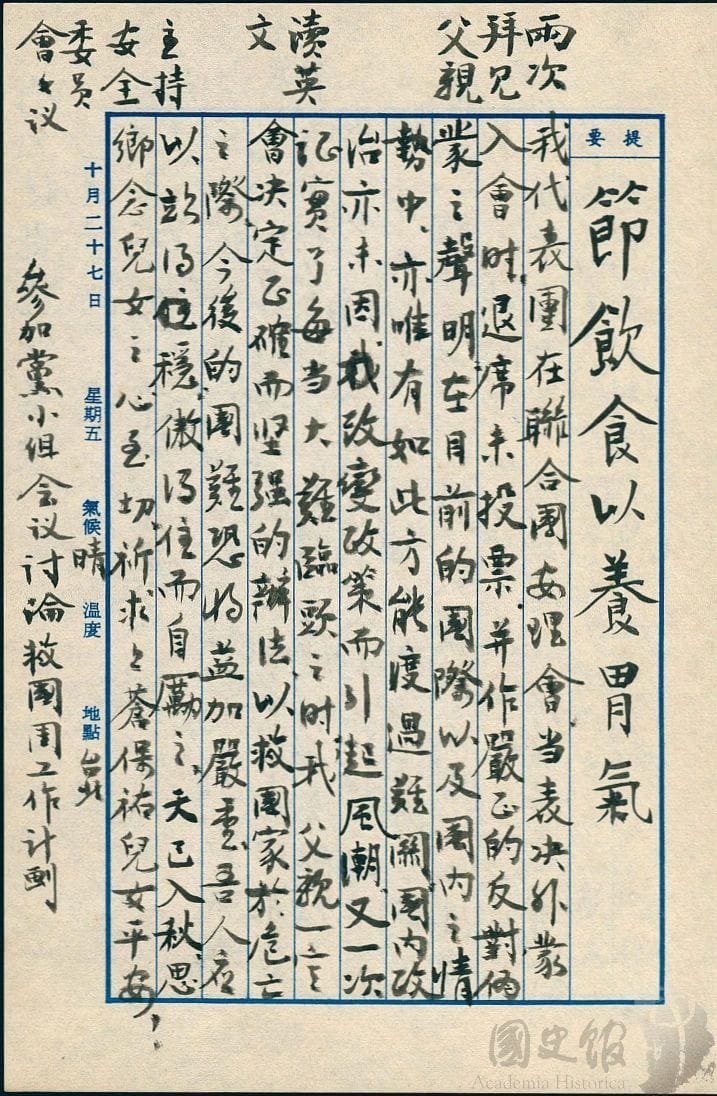 兩次
拜見
父親
瀆英
文
主持
安全
委員
會會議
提要
節飲食以養胃氣
我代表團在聯合國安理會當表決外蒙
入會時退席未投票,并作嚴正的反對偽
蒙之聲明在目前的國際以及國內之情
勢中,亦唯有如此方能渡過難關國內政
治亦未因我改變政策而引起風潮,又一次
証實了每当大難臨頭之时我 父親一定
會決定正確而坚强的辦法以救國家於危亡
之際,今後的國難恐将益加嚴重吾人应
以站得穩傲得住而自勵之.天已入秋思
鄉念兒女之心至切祈求上蒼保祐兒女平安,
十月二十七日 星期五 氣候晴 溫度 地點台北
參加黨小组会议討論救國團工作计劃
國史館
Academia Historica